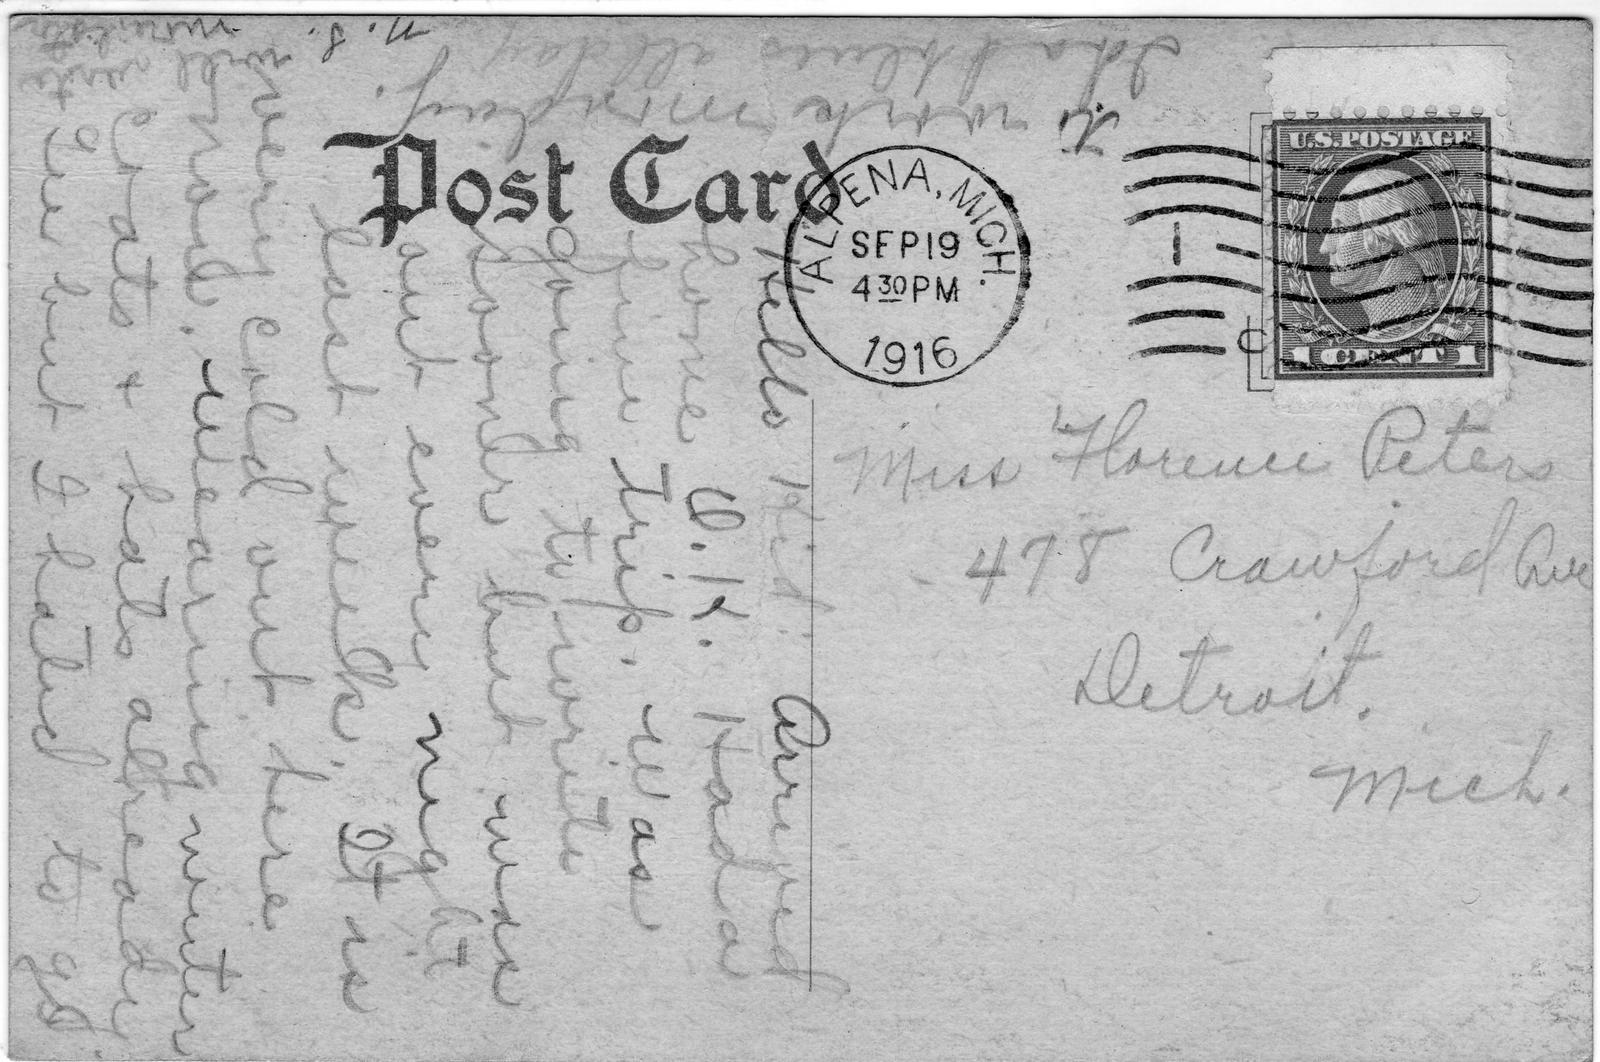 Post Card
ALPENA, MICH.
SEP 19
4 30 PM
1916
1
U.S. POSTAGE
1 CENT 1
Miss Florence Peters
478 Crawford Ave
Detroit.
Mich.
Hello Kid. Arrived
home O.K. Had a
fine trip. Was
going to write
sooner but was
out every night
last week. It is
very cold out here
Mable. Wearing winter
Coats + hats already
Gee but I hated to go
to work monday.
I had blues all day
N. S.
will write
more later